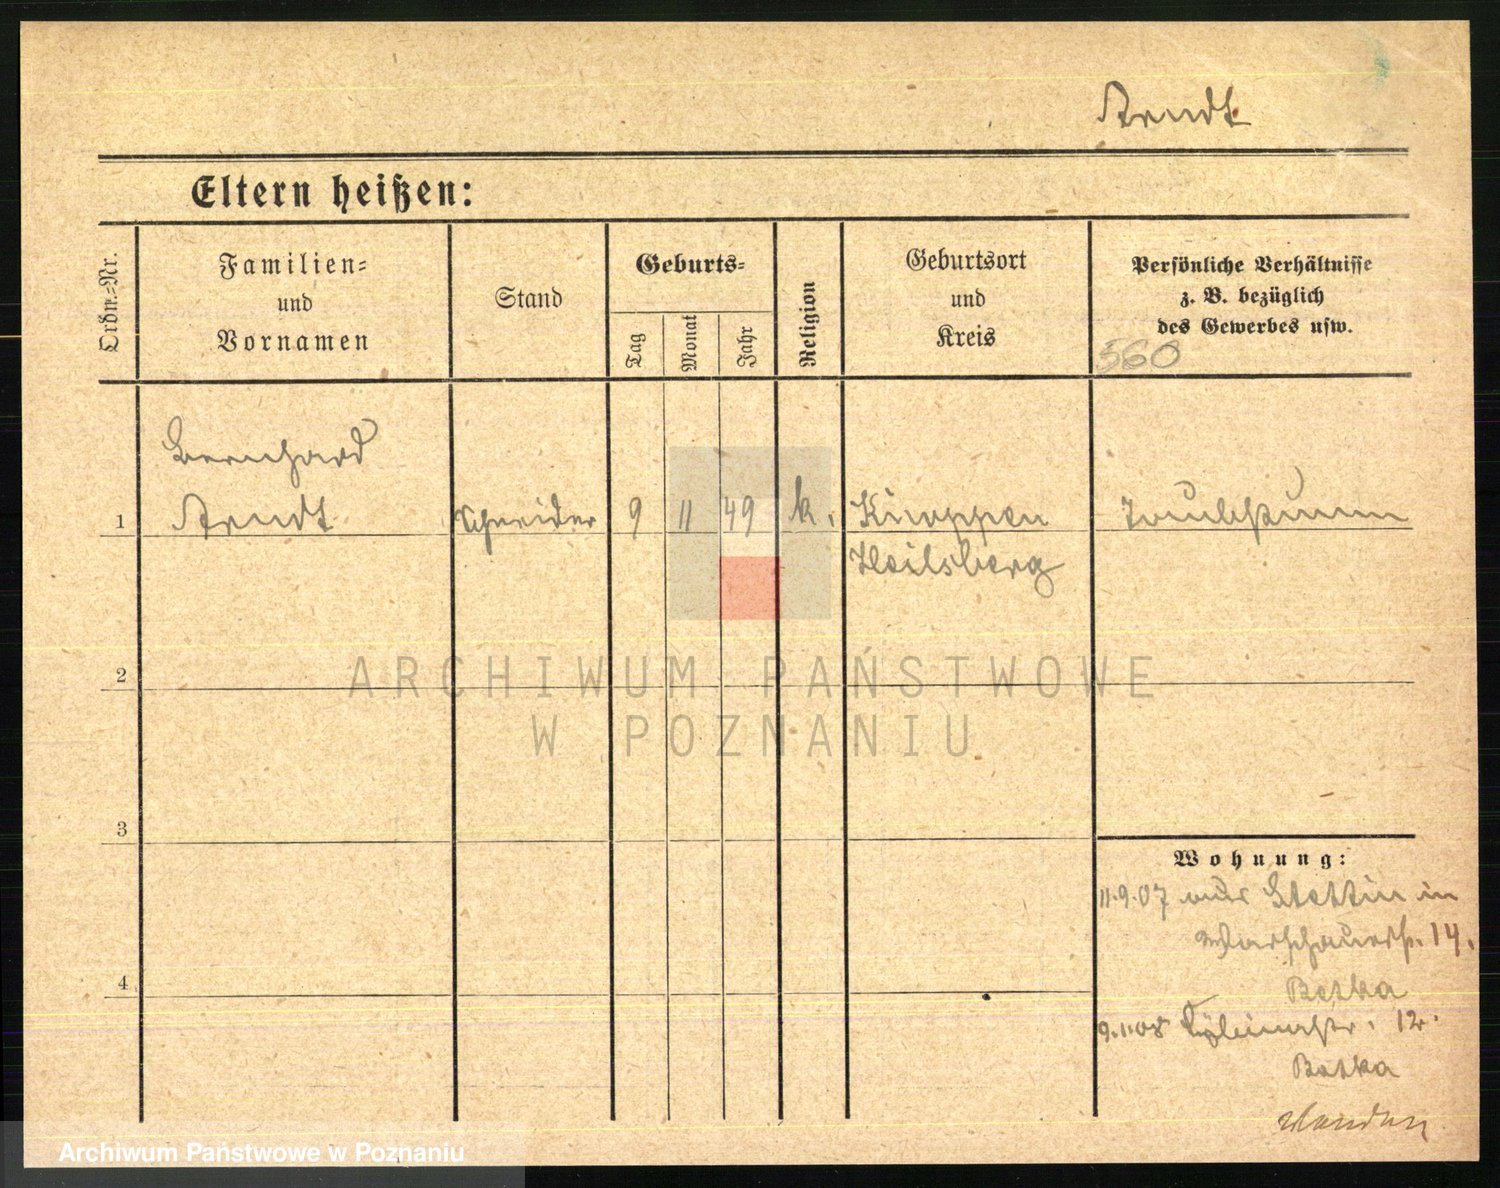 Arndt
Eltern heißen:
Ordn.-Nr.
Familien-
und
Vornamen
Stand
Geburts-
Tag
Monat
Jahr
Religion
Geburtsort
und
Kreis
Persönliche Verhältnisse
z. B. bezüglich
des Gewerbes usw.
560
Bernhard
1 Arndt Schneider 9 11 49 k. Knappen Taubstumm
Heilsberg
2
ARCHIWUM PAŃSTWOWE
W POZNANIU
3
Wohnung:
11.9.07 aus Stettin in
Warschauerstr. 14.
Betka
4
9.1.08 12.
Betka
Archiwum Państwowe w Poznaniu